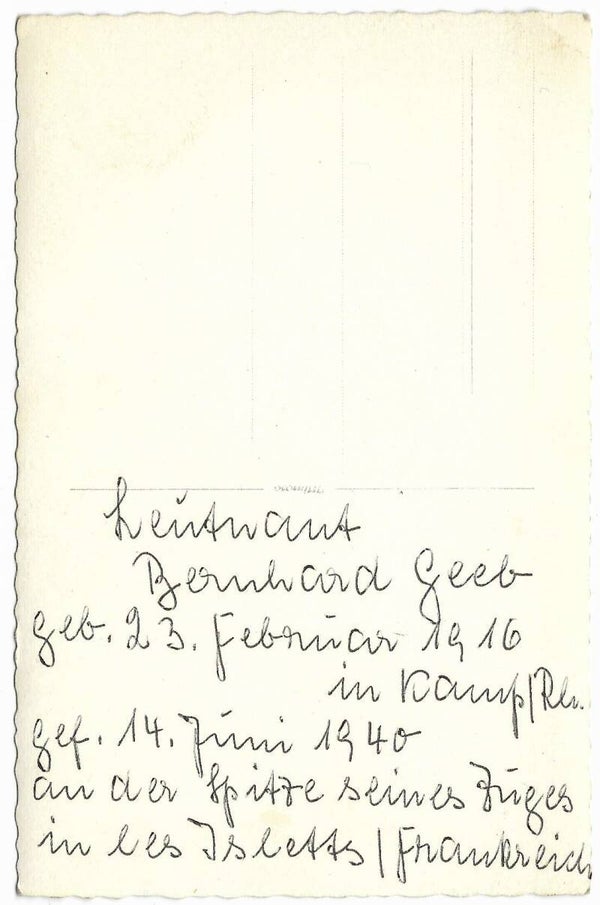 Leutnant
Bernhard Geeb
geb. 23. Februar 1916
in Kamp/Rh.
gef. 14. Juni 1940
an der Spitze seines Zuges
in les Isletts/Frankreich